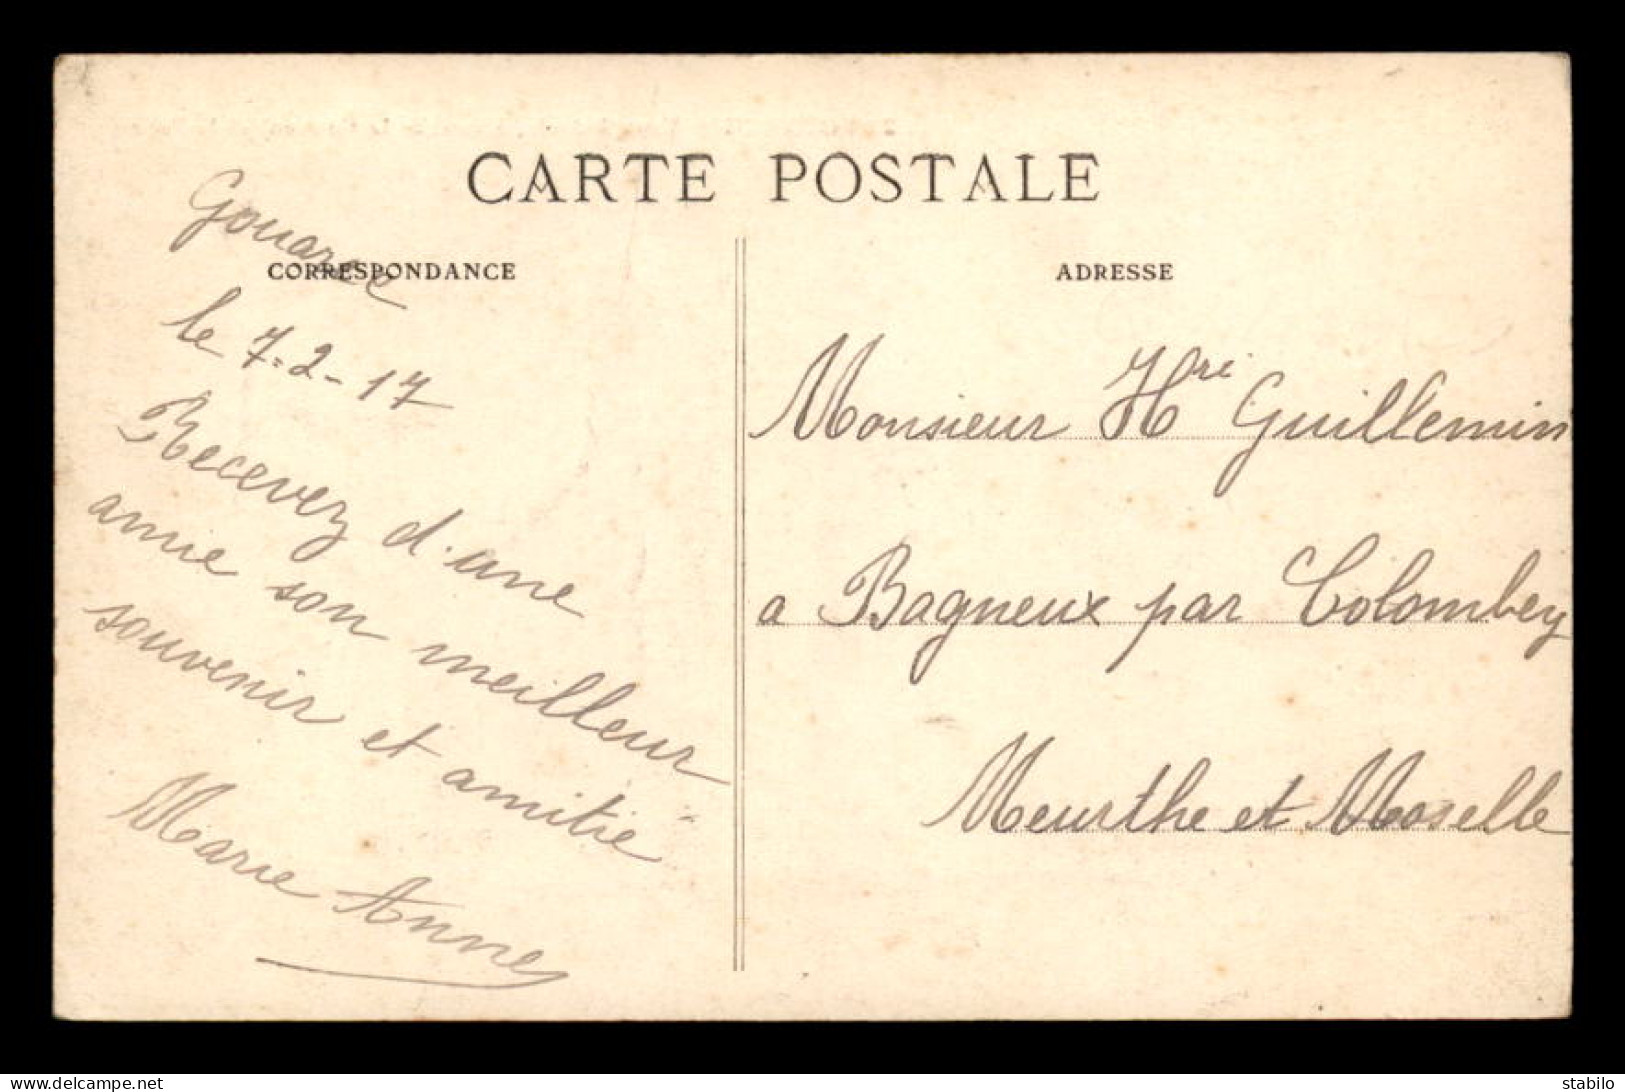 CARTE POSTALE
CORRESPONDANCE
Gouarec
le 7-2-17
Recevez d'une
amie son meilleur
souvenir et amitié
Marie Anne
ADRESSE
Monsieur Hri Guillemin
a Bagneux par Colombey
Meurthe et Moselle
delcampe.net
stabilo